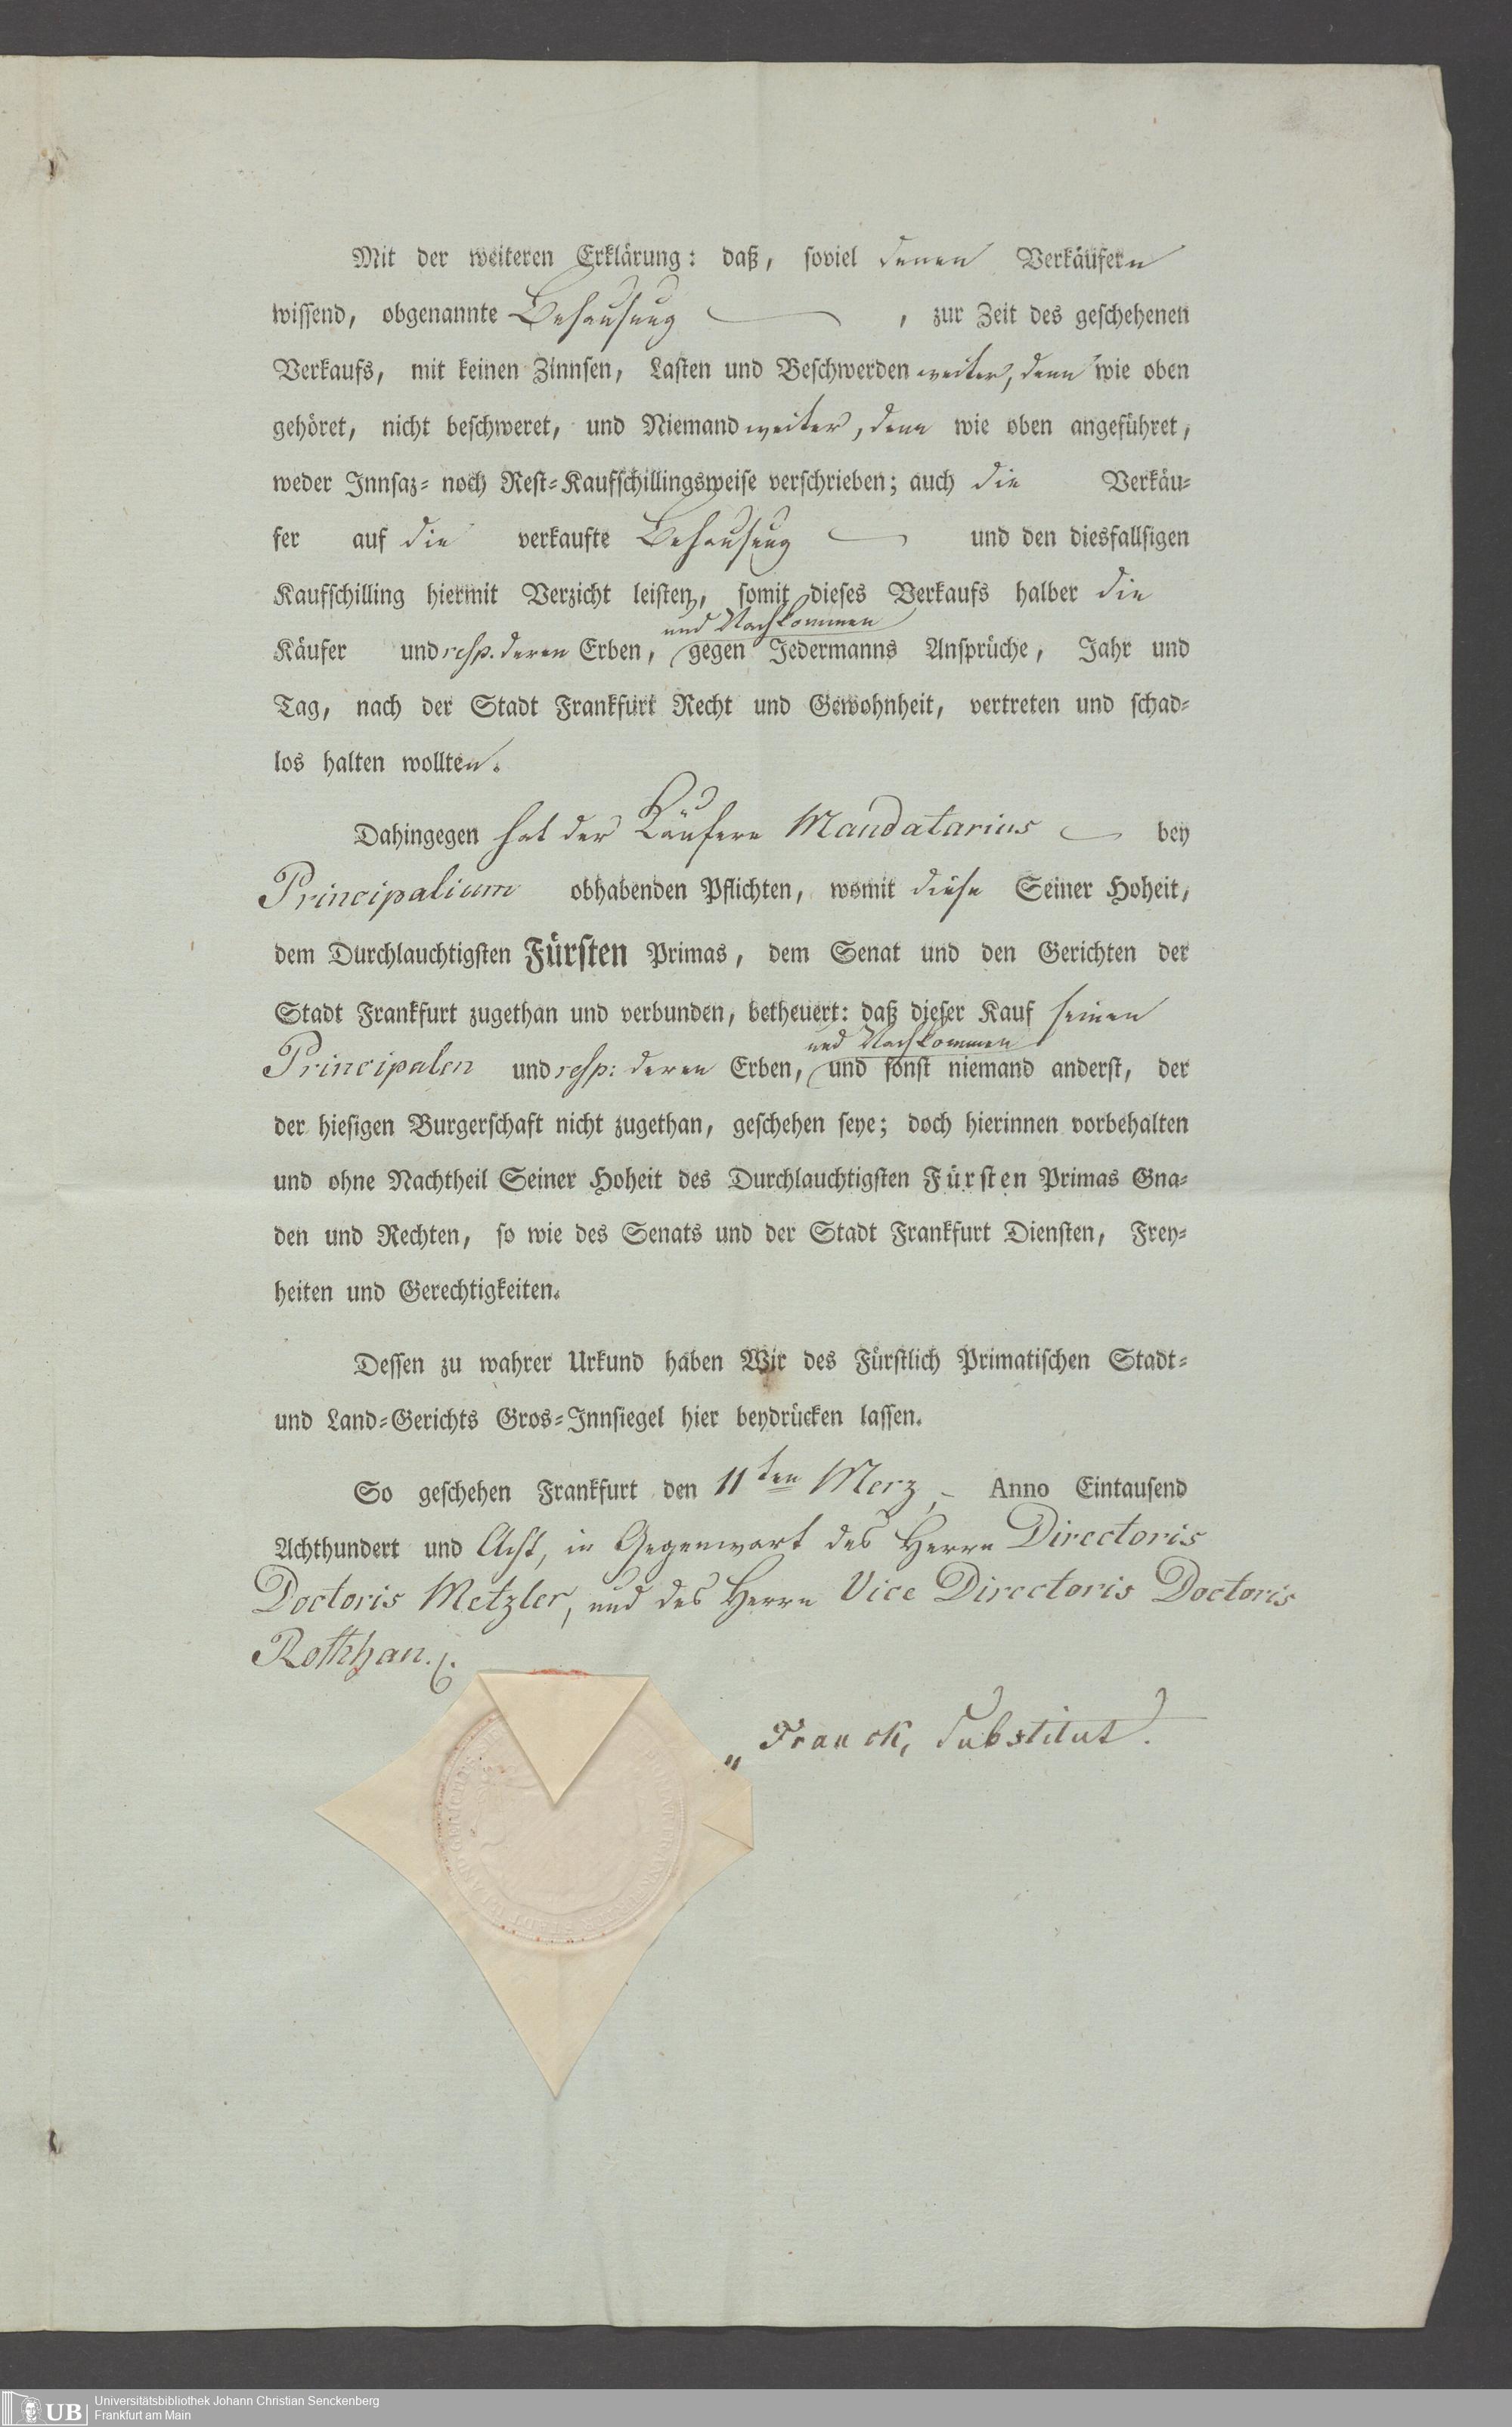 Mit der weiteren Erklärung: daß, soviel denen Verkäufern
wissend, obgenannte Behausung , zur Zeit des geschehenen
Verkaufs, mit keinen Zinnsen, Lasten und Beschwerden weiter, denn wie oben
gehöret, nicht beschweret, und Niemand weiter, denn wie oben angeführet,
weder Innsaz- noch Rest-Kaufschillingsweise verschrieben; auch die Verkäu-
fer auf die verkaufte Behausung und den diesfallsigen
Kaufschilling hiermit Verzicht leisten, somit dieses Verkaufs halber die
und Nachkommen
Käufer und resp. deren Erben, gegen Jedermanns Ansprüche, Jahr und
Tag, nach der Stadt Frankfurt Recht und Gewohnheit, vertreten und schad-
los halten wollten.
Dahingegen hat der Käufern Mandatarius bey
Principalium obhabenden Pflichten, womit diese Seiner Hoheit,
dem Durchlauchtigsten Fürsten Primas, dem Senat und den Gerichten der
Stadt Frankfurt zugethan und verbunden, betheuert: daß dieser Kauf seinen
und Nachkommen
Principalen und resp: deren Erben, und sonst niemand anderst, der
der hiesigen Burgerschaft nicht zugethan, geschehen seye; doch hierinnen vorbehalten
und ohne Nachtheil Seiner Hoheit des Durchlauchtigsten Fürsten Primas Gna-
den und Rechten, so wie des Senats und der Stadt Frankfurt Diensten, Frey-
heiten und Gerechtigkeiten.
Dessen zu wahrer Urkund haben Wir des Fürstlich Primatischen Stadt-
und Land-Gerichts Gros-Innsiegel hier beydrücken lassen.
So geschehen Frankfurt den 11ten Merz, Anno Eintausend
Achthundert und Acht, in Gegenwart des Herrn Directoris
Doctoris Metzler, und des Herrn Vice Directoris Doctoris
Rothhan.
Franck, Substitut.
UB Universitätsbibliothek Johann Christian Senckenberg
Frankfurt am Main